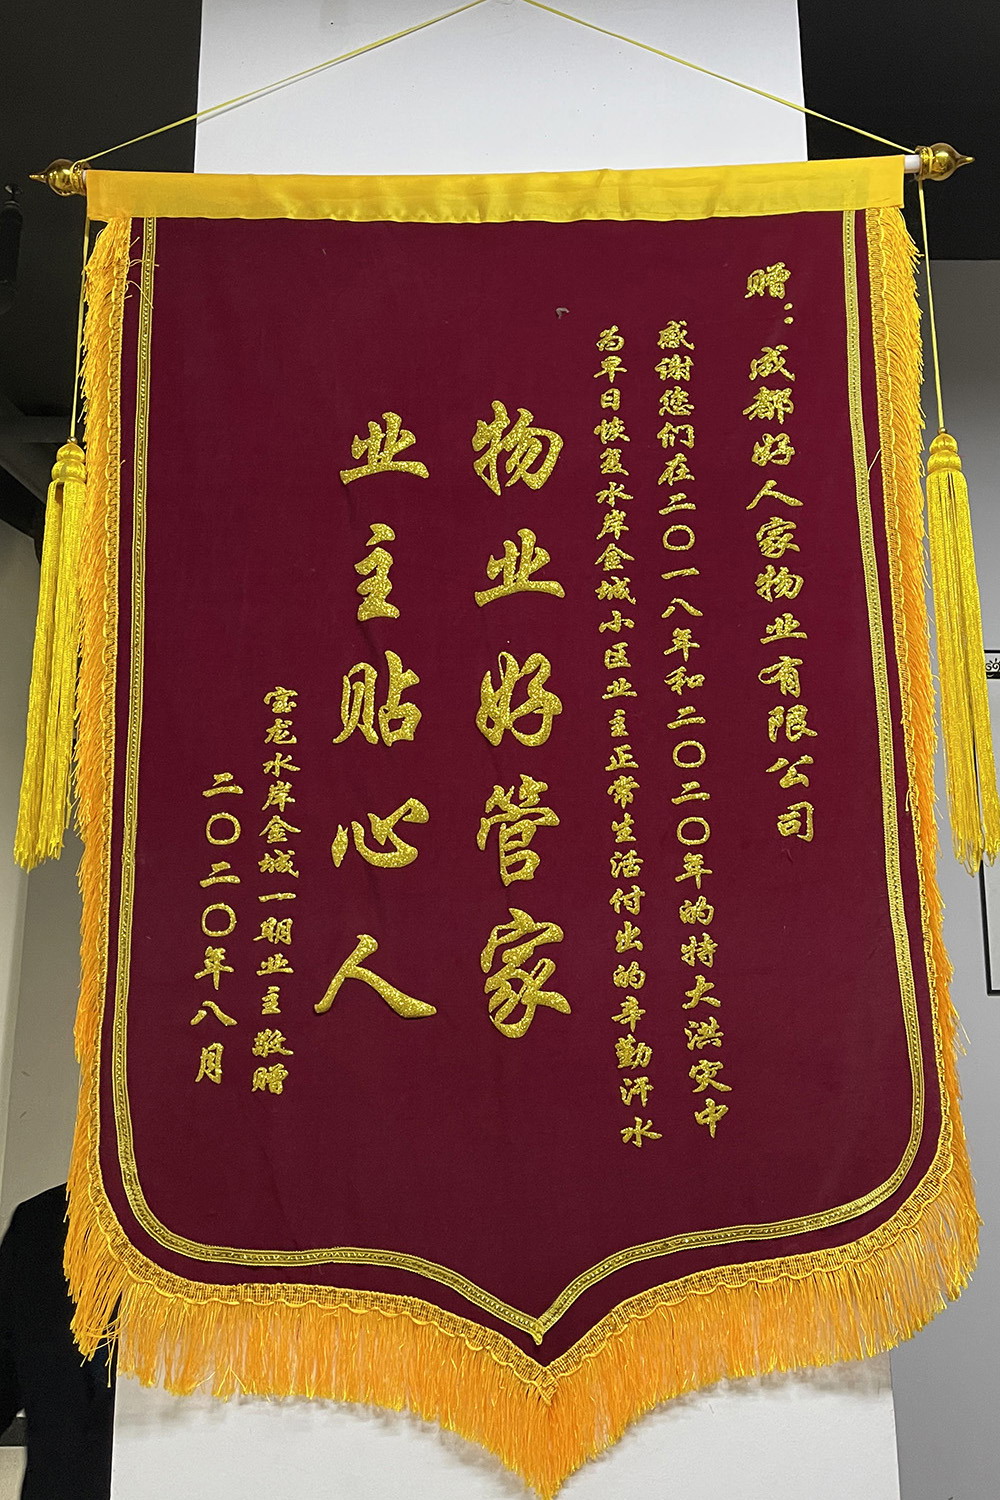 赠：成都好人家物业有限公司
感谢您们在二〇一八年和二〇二〇年的特大洪灾中
为早日恢复水岸金城小区业主正常生活付出的辛勤汗水
物业好管家
业主贴心人
宝龙水岸金城一期业主敬赠
二〇二〇年八月